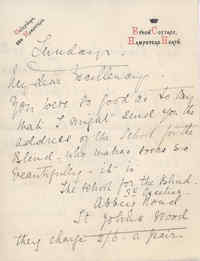 Telephone
Hampstead
Byron Cottage,
Hampstead Heath.
Sunday.
My dear Excellency
You were so good as to say
that I might send you the
address of the School for the
Blind, who makes socks so
beautifully - it is
The School for the Blind
Abbey Road
St Johns Wood
they charge 2/6 a pair.